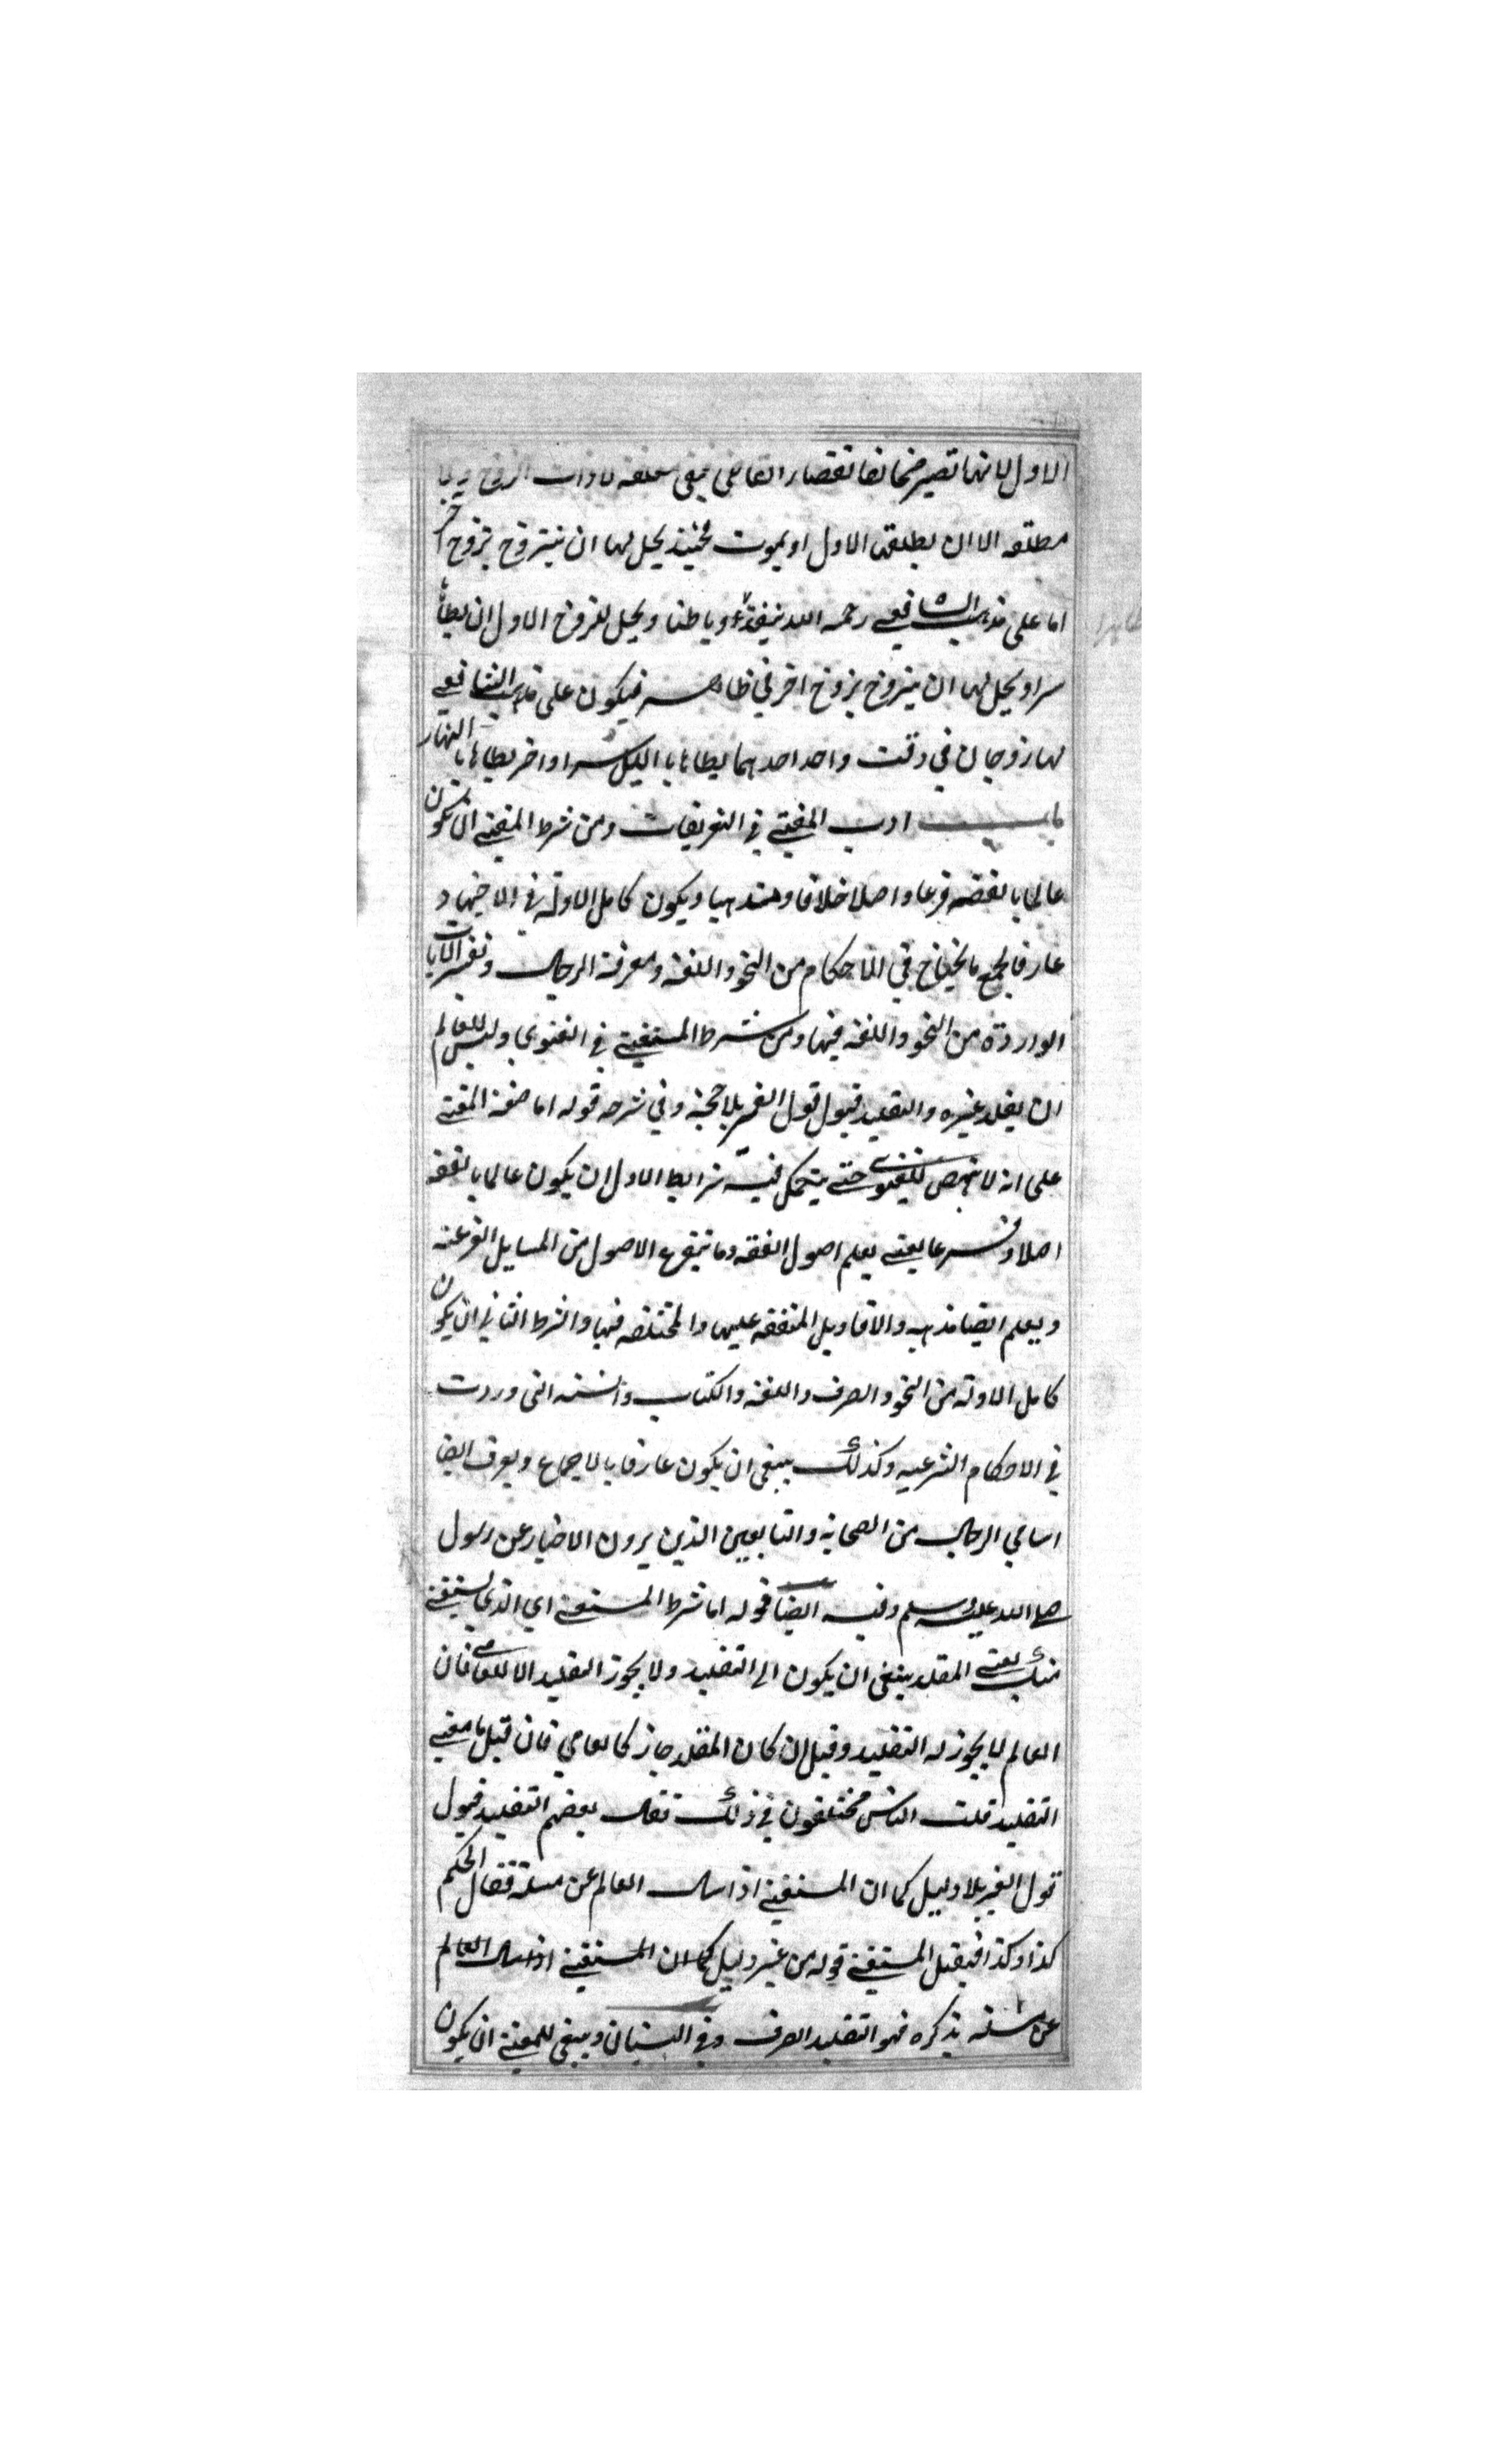 الاول لانها تصير ضمانا بقضاء القاضي فيبقى معلقه لا ذات الزوج ولا
مطلقه الا ان يطلقها الاول او يموت فحينئذ يحل لها ان يتزوج بزوج آخر
اما على مذهب الشافعي رحمه الله ينفذ ظاهرا و باطنا و يحل لزوج الاول ان يطأها
سرا و يحل لها ان يتزوج بزوج اخر في ظاهره فيكون على مذهب الشافعي
لها زوجان في وقت واحد احدهما يطاها با الليل سرا و اخر يطاها با النهار
باب ادب المفتي في التعريفات و من شرط المفتي ان يكون
عالما بالفقه فرعا و اصلا خلافا و مذهبا و يكون كامل الادلة في الاجتهاد
عارفا بجمع ما يحتاج في الاحكام من النحو و اللغة و معرفة الرجال و تفسير الآيات
الواردة من النحو و اللغة فيها و من شرط المستفتي في الفتوى و ليس للعالم
ان يقلد غيره و التقليد قبول قول الغير بلا حجة و في شرحه قوله اما صفة المفتي
على انه لا ينهض للفتوى حتى يتحمل فيه شرايط الاول ان يكون عالما بالفقه
اصلا و فرعا يعني يعلم اصول الفقه و ما يتفرع الاصول من المسايل الفرعية
و يعلم ايضا مذهبه و الاقاويل المتفقه عليها و المختلفه فيها و الشرط الثاني ان يكون
كامل الادلة من النحو و الصرف و اللغة و الكتاب و السنه التى وردت
في الاحكام الشرعيه و كذلك ينبغي ان يكون عارفا بالاجماع و يعرف ايضا
اسامي الرجال من الصحابة و التابعين الذين يروون الاخبار عن رسول
صلى الله عليه و سلم و فيه ايضا قوله اما شرط المستفتي اي الذي يستفتي
منك يعني المقلد ينبغي ان يكون اهل التقليد و لا يجوز التقليد الا للعامي فان
العالم لا يجوز له التقليد و قيل ان كان المقلد جاز كالعامي فان قيل ما معنى
التقليد قلت الناس مختلفون في ذلك فقال بعضهم التقليد قبول
قول الغير بلا دليل كما ان المستفتي اذا سال العالم عن مسئلة فقال الحكم
كذا و كذا فيقبل المستفتي قوله من غير دليل كما ان المستفتي اذا سال العالم
عن مسئلة يذكره فهو التقليد الصرف و في البستان و ينبغي للمفتي ان يكون